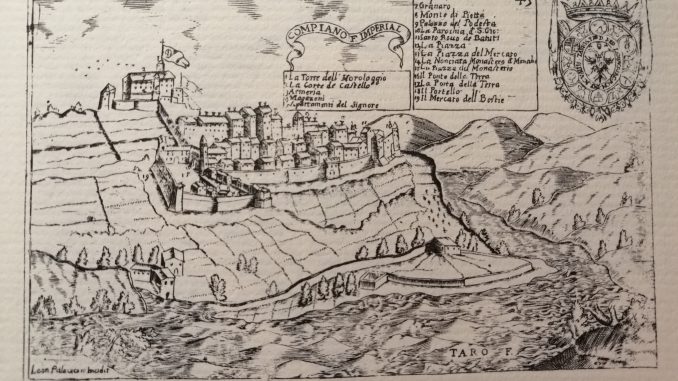 COMPIANO P. IMPERIAL
1 La Torre dell' Horologgio
2 La Corte de Castello
3 Armeria
4 Magazeni
5 Apartamenti del Signore
7 Granaro
8 Monte di Pietta
9 Palazzo del Podesta
10 La Parochia d' S. Gio:
11 Santo Rocco de Batuti
12 La Piazza
La Piazza del Mercato
14 La Nonciata Monastero di Monache
15 La Piazza del Monasterio
16 Il Ponte della Terra
17 La Porta della Terra
18 Il Portello
19 Il Mercato dell Bestie
TARO F.
Leon